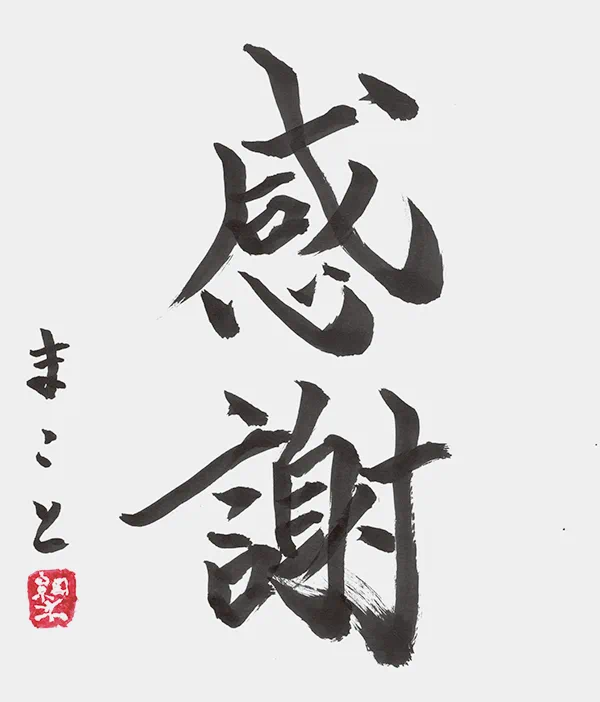 感謝
まこと